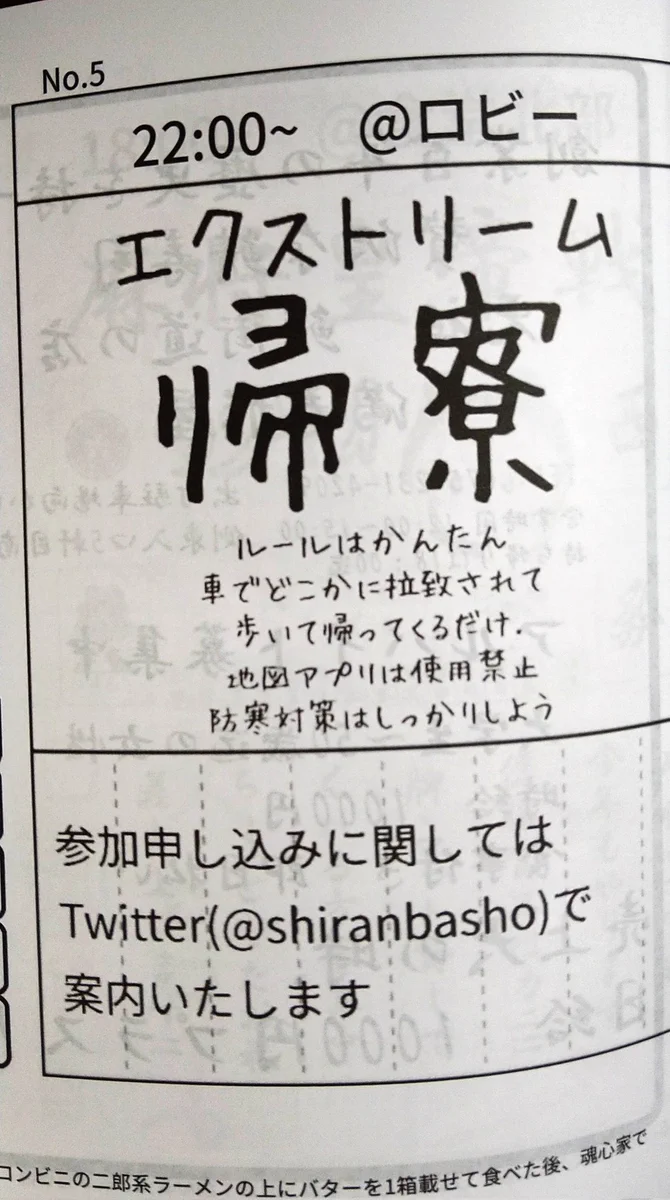 No.5
22:00~ @ロビー
エクストリーム
帰寮
ルールはかんたん
車でどこかに拉致されて
歩いて帰ってくるだけ.
地図アプリは使用禁止
防寒対策はしっかりしよう
参加申し込みに関しては
Twitter(@shiranbasho)で
案内いたします
コンビニの二郎系ラーメンの上にバターを1箱載せて食べた後、魂心家で